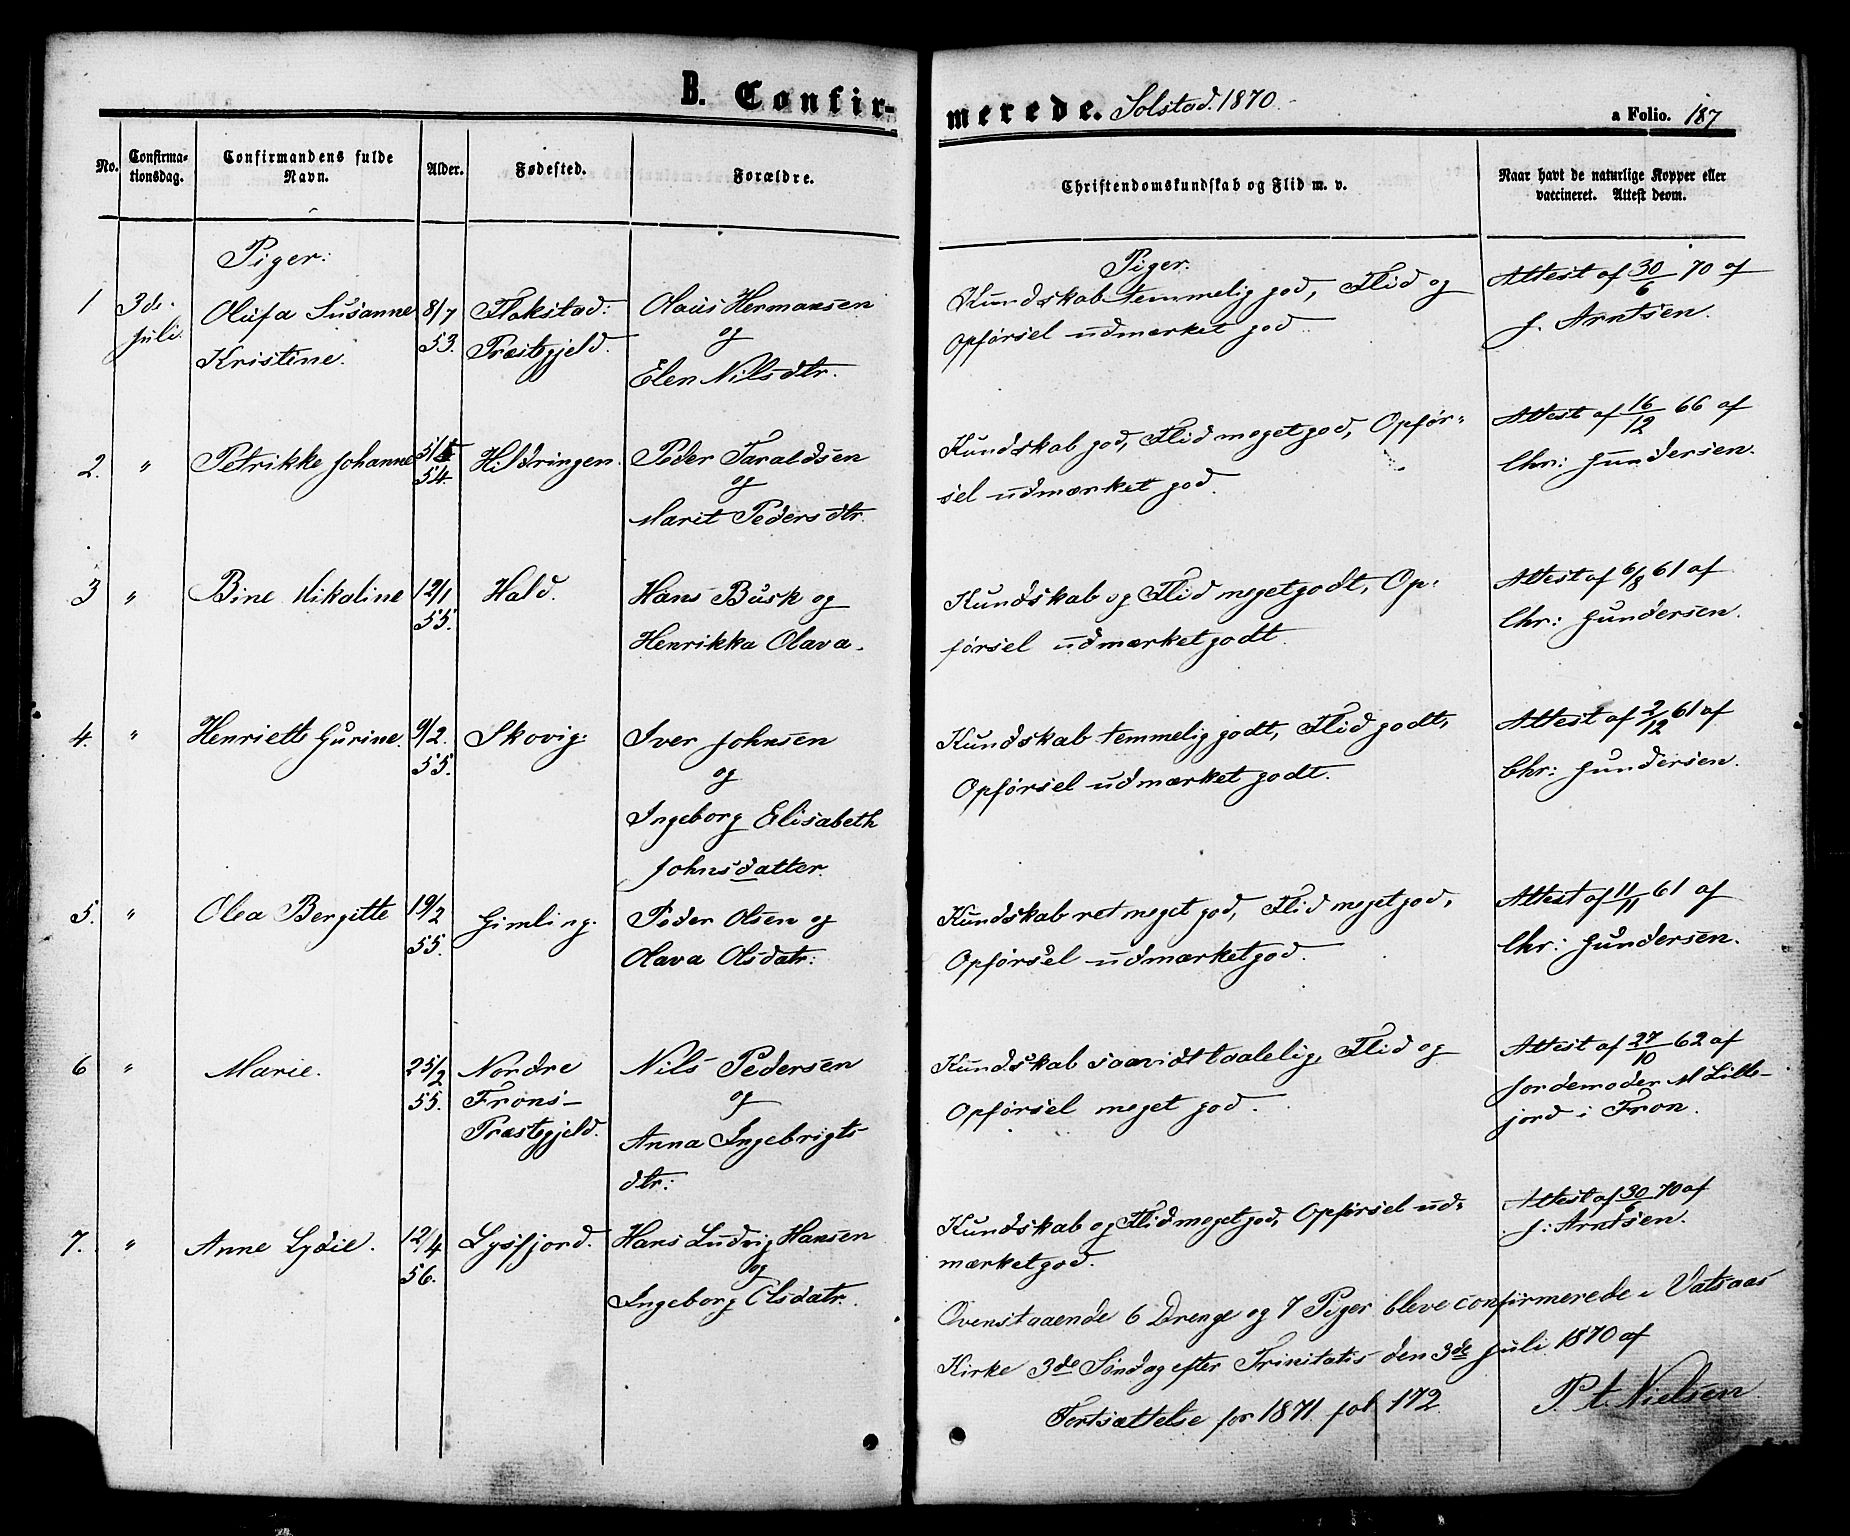 B. Confirmerede. Solstad. 1870. a Folio. 187
No. Confirmationsdag. Confirmandens fulde Navn. Alder. Fødested. Forældre. Christendomskundskab og Flid m. v. Naar havt de naturlige Kopper eller vaccineret. Attest derom.
Piger:
1 3de Juli. Olufa Susanne Kristine. 8/7 53. Flakstad: Præstegjeld. Olaus Hermansen
og
Elen Nilsdtr.
2. " Petrikke Johanne 54. Hildringen. Peder Taraldsen
og
Marit Pedersdtr.
3 " Bine Nikoline 12/1 55. Hald. Hans Busk og
Henrikka Olava.
4. " Henriette Gurine. 9/2. 55. Skovig. Iver Johnsen
og
Ingeborg Elisabeth
Johnsdatter.
5. " Olea Bergitte 19/2 55. Gimling. Peder Olsen og
Olava Olsdatr:
6 " Marie. 25/2 55. Nordre Frons- Præstegjeld. Nils Pedersen
og
Anna Ingebrigts
dtr:
7. " Anne Lydie. 12/4 56. Lysfjord. Hans Ludvig Hansen
og
Ingeborg Olsdatr.
Piger:
Kundskab temmelig god, Flid og
Opførsel udmærket god.
Attest af 30/6 70 af
J. Arntsen.
Kundskab god, Flid meget god, Opfør-
sel udmærket god.
Attest af 16/12 66 af
Chr: Gundersen.
Kundskab og Flid meget godt, Op-
førsel udmærket godt.
Attest af 6/8 61 af
Chr: Gundersen.
Kundskab temmelig godt, Flid godt,
Opførsel udmærket godt.
Attest af 2/12 61 af
Chr: Gundersen.
Kundskab ret meget god, Flid meget god,
Opførsel udmærket god.
Attest af 11/11 61 af
Chr: Gundersen.
Kundskab saavidt taalelig, Flid og
Opførsel meget god.
Attest af 27/10 62 af
Jordemoder M Lille-
jord i Fron.
Kundskab og Flid meget god, Opførsel ud-
mærket god.
Attest af 30/6 70 af
J: Arntsen.
Ovenstaaende 6 Drenge og 7 Piger bleve confirmerede i Vatsaas
Kirke 3de Søndag efter Trinitatis den 3de Juli 1870 af
P. A. Nielsen
Fortsættelse for 1871 fol 172